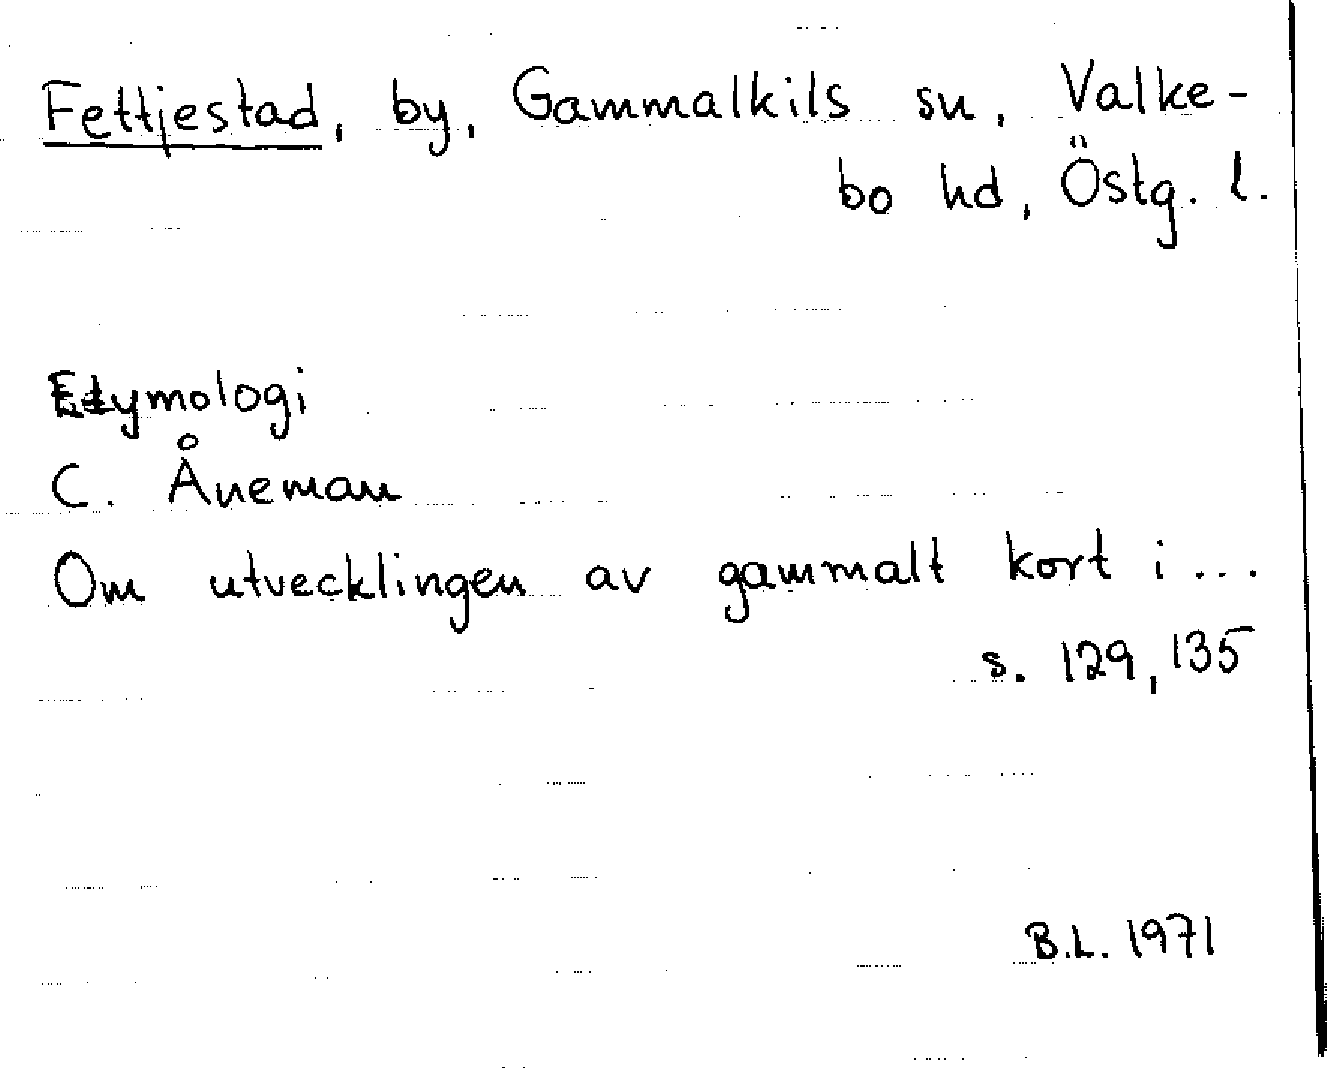 Fettjestad, by, Gammalkils sn, Valke-
bo hd, Östg. l.
Etymologi
C. Åneman
Om utvecklingen av gammalt kort i...
s. 129, 135
B.L. 1971